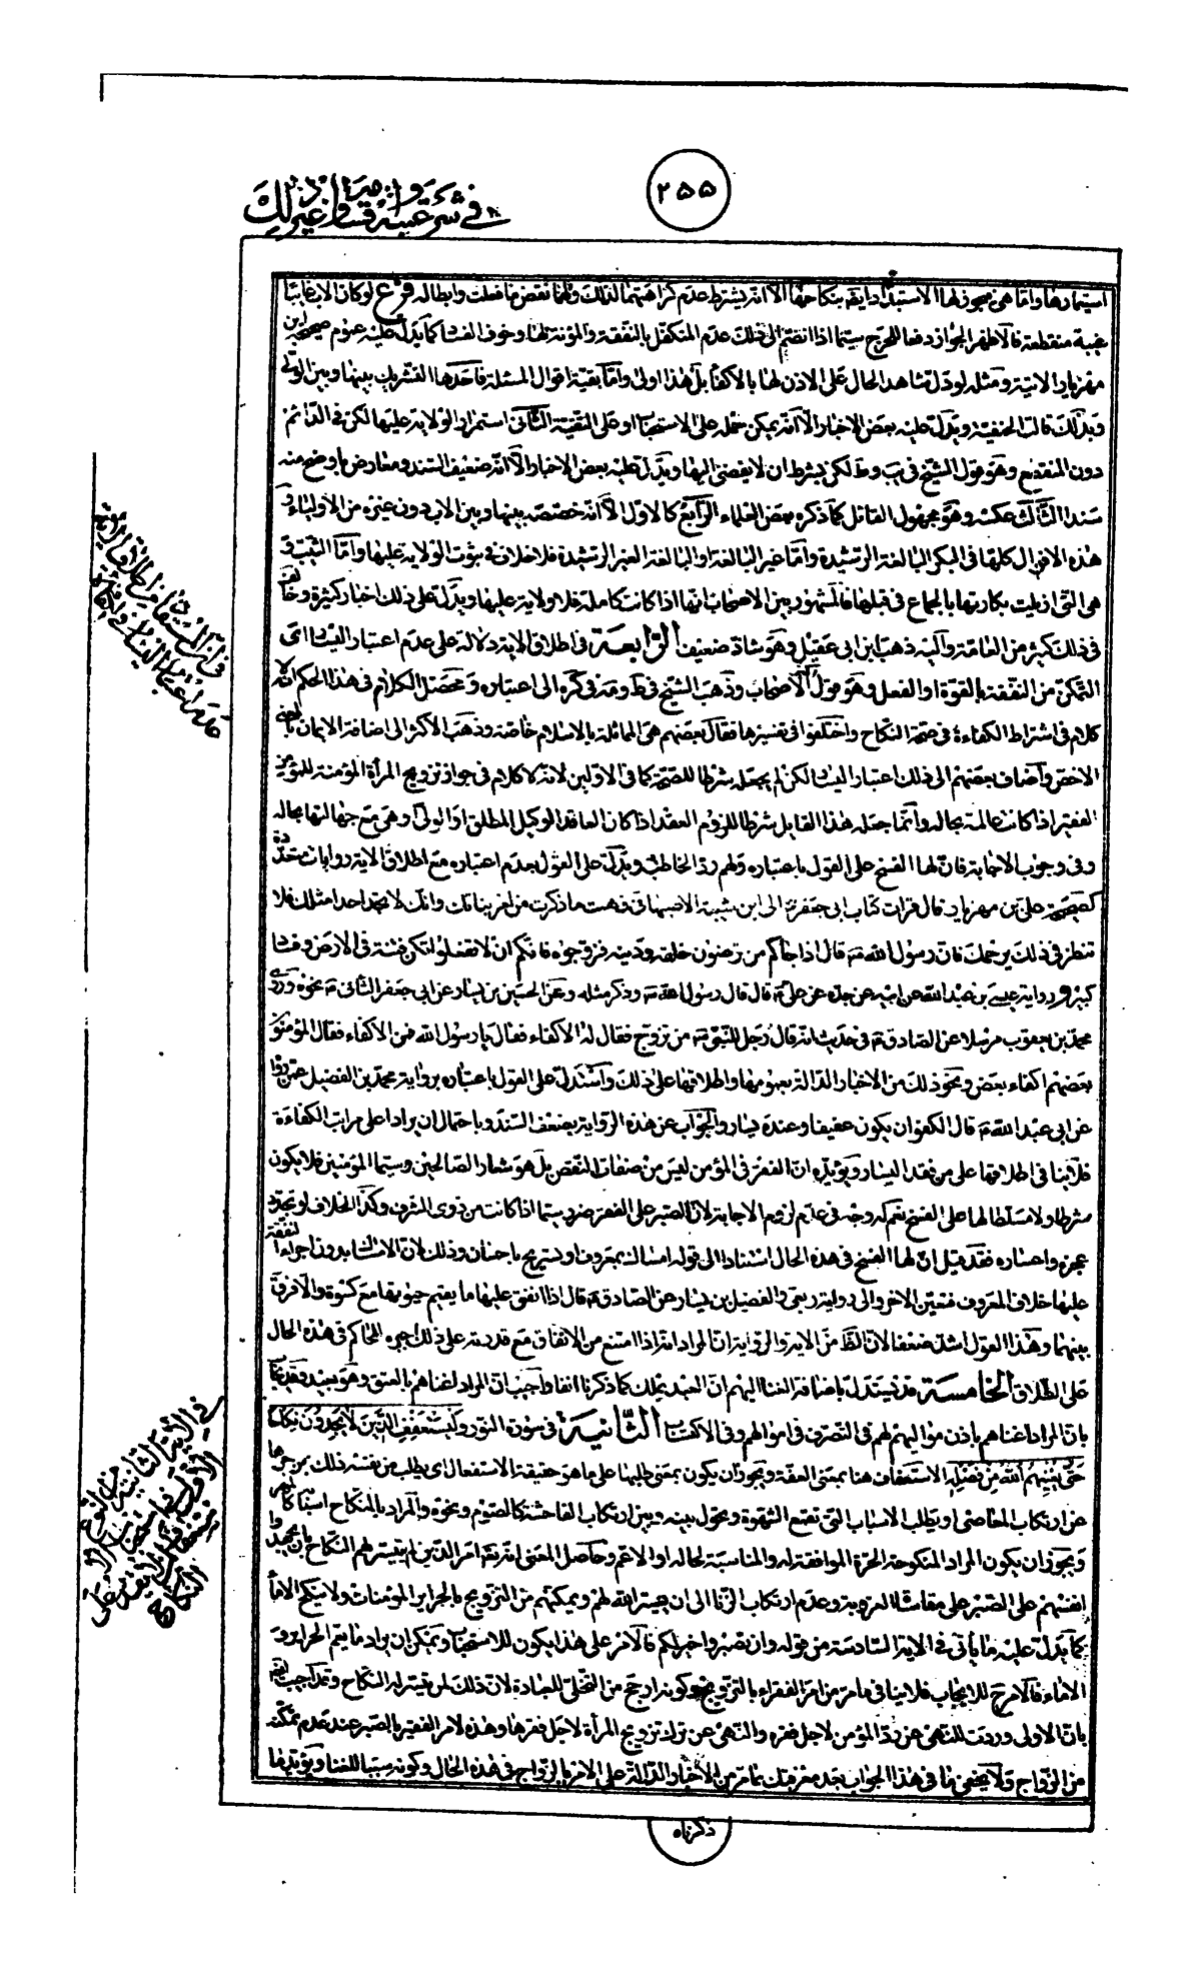 ٢٥٥
في شرعية وغير ذلك
استيمارها وامّا هي فيجوز لها الاستبداد ايضا بنكاحها الّا انّه يشترط عدم كراهتهما لذلك نقض ما فعلت وابطاله فرع لو كان الاب غايبا
غيبة منقطعة فالاظهر الجواز دفعا للحرج سيّما اذا انضمّ الى ذلك عدم المتكفّل بالنّفقة والمؤنة لها وخوف الفساد كما يدلّ عليه عموم صحيحة ابن
مهزيار الاتية ومثله لو دلّ شاهد الحال على الاذن لها بالاكفاء بل هذا اولى وامّا بقيّة اقوال المسئلة فاحدها التّشريك بينها وبين الولي
وبذلك قالت الحنفية ويدلّ عليه بعض الاخبار الّا انّه يمكن حمله على الاستحباب او على التّقيّة الثّاني استمرار الولاية عليها لكن في الدّائم
دون المنقطع وهو قول الشّيخ في يب وط لكن بشرط ان لا يفضى اليها ويدلّ عليه بعض الاخبار الّا انّه ضعيف السّند ومعارض باوضح منه
سندا الثّالث عكسه وهو مجهول القائل كما ذكره بعض العلماء الرّابع كالاوّل الّا انّه خصّصه بينها وبين الاب دون غيره من الاولياء
هذه الاقوال كلّها في البكر البالغة الرّشيدة وامّا غير البالغة او البالغة الغير الرّشيدة فلا خلاف في ثبوت الولاية عليها وامّا الثّيّب و
هي التي ازيلت بكارتها بالجماع في قبلها فالمشهور بين الاصحاب انّها اذا كانت كاملة فلا ولاية عليها ويدلّ على ذلك اخبار كثيرة وخالف
في ذلك كثير من العامّة واليه ذهب ابن ابي عقيل وهو شاذ ضعيف الرّابعة في اطلاق الاية دلالة على عدم اعتبار اليسار اي
التّمكّن من النّفقة بالقوّة او الفعل وهو قول الاصحاب وذهب الشّيخ في ط الى اعتباره ومحصّل الكلام في هذا الحكم انّه لا
كلام في اشتراط الكفاءة في صحّة النّكاح واختلفوا في تفسيرها فقال بعضهم هي المماثلة بالاسلام خاصّة وذهب الاكثر الى اضافة الايمان بالمعنى
الاخص واضاف بعضهم الى ذلك اعتبار اليسار لكن لم يجعله شرطا للصّحة كما في الاوّلين لانّه لا كلام في جواز تزويج المرأة المؤمنة للمؤمن
الفقير اذا كانت عالمة بحاله وانّما جعله هذا القايل شرطا للزوم العقد اذا كان العاقد الوكيل المطلق او الولي او هي مع جهالتها بحاله
وفي وجوب الاجابة فانّ لها الفسخ على القول باعتباره ولهم ردّ الخاطب ويدلّ على القول بعدم اعتباره مع اطلاق الاية روايات متعدّدة
كصحيحة علي بن مهزيار قال قرات كتاب ابي جعفر ع الى ابن شيبة الاصبهاني فهمت ما ذكرت من امر بناتك وانّك لا تجد احدا مثلك فلا
تنظر في ذلك يرحمك فانّ رسول الله ص قال اذا جاءكم من ترضون خلقه ودينه فزوّجوه فانّكم ان لا تفعلوا تكن فتنة في الارض وفساد
كبير و رواية عيسى بن عبد الله عن ابيه عن جدّه عن علي ع قال قال رسول الله ص وذكر مثله وعن الحسين بن بشار عن ابي جعفر الثّاني ع نحوه وروى
محمد بن يعقوب مرسلا عن الصّادق ع في حديث انّه قال رجل للنّبي ص من تزوّج فقال له الاكفاء فقال يا رسول الله فمن الاكفاء فقال المؤمنون
بعضهم اكفاء بعض ونحو ذلك من الاخبار الدّالة بعمومها واطلاقها على ذلك واستدلّ على القول باعتباره برواية محمد بن الفضيل عمّن رواه
عن ابي عبد الله ع قال الكفو ان يكون عفيفا وعنده يسار والجواب عن هذه الرّواية بضعف السّند وباحتمال ان يراد اعلى مراتب الكفاءة
فلا ينافي اطلاقها على من فقد اليسار ويؤيّده انّ الفقر في المؤمن ليس من صفات النّقص بل هو شعار الصّالحين وسيّما المؤمنين فلا يكون
شرطا ولا مسلّطا لها على الفسخ نعم له وجه في عدم لزوم الاجابة لانّ الصّبر على الفقر ضرر سيّما اذا كانت من ذوى الشّرف وكذا الخلاف لو تجدّد
عجزه واعساره فقد قيل انّ لها الفسخ في هذه الحال استنادا الى قوله امساك بمعروف او تسريح باحسان وذلك لانّ الامساك بدون اجراء النّفقة
عليها خلاف المعروف فتعيّن الاخر والى رواية ربعي والفضيل بن يسار عن الصّادق ع قال اذا انفق عليها ما يقيم حيوتها مع كسوة والّا فرّق
بينهما وهذا القول اشدّ ضعفا لانّ الظّ من الاية والرّواية انّ المراد انّه اذا امتنع من الانفاق مع قدرته على ذلك اجبره الحاكم في هذه الحال
على الطّلاق الخامسة قد يستدلّ باضافة الغنا اليهم انّ العبد يملك كما ذكرنا انفا واجيب انّ المراد اغناهم بالعتق وهو بعيد وقد يجاب
بانّ المراد اغناهم باذن مواليهم لهم في التّصرف في اموالهم وفي الاكتساب الثّانية في سورة النّور وليستعفف الّذين لا يجدون نكاحا
حتّى يغنيهم الله من فضله الاستعفاف هنا بمعنى العفّة ويجوز ان يكون بمعنى طلبها على ما هو حقيقة الاستفعال اى يطلب من نفسه ذلك بزجرها
عن ارتكاب المعاصي او يطلب الاسباب التي تقمع الشّهوة وتحول بينه وبين ارتكاب الفاحشة كالصّوم ونحوه والمراد بالنكاح اسبابه كالمهر
ويجوز ان يكون المراد المنكوحة الحرّة الموافقة له والمناسبة لحاله او الاعم وحاصل المعنى انّه تعالى امر الّذين لم يتيسّر لهم النّكاح بان يجهدوا
انفسهم على الصّبر على مقاساة العزوبة وعدم ارتكاب الزّنا الى ان ييسّر الله لهم ويمكنهم من التّزويج بالحراير المؤمنات ولا ينكح الاماء
كما يدلّ عليه ما يأتي في الاية السّادسة من قوله وان تصبروا خير لكم فالامر على هذا يكون للاستحباب ويمكن ان يراد ما يعم الحراير و
الاماء فالامر ح للايجاب فلا ينافي ما مر من امر الفقراء بالتّزويج وكونه ارجح من التّخلي للعبادة لانّ ذلك لمن تيسّر له النّكاح وقد اجيب ايضا
بانّ الاولى وردت للنّهي عن ردّ المؤمن لاجل فقره والنّهي عن ترك تزويج المرأة لاجل فقرها وهذه لامر الفقير بالصّبر عند عدم تمكّنه
من الزّواج ولا يخفى ما في هذا الجواب بعد معرفتك بما مر من الاخبار الدّالة على الامر بالزّواج في هذه الحال وكونه سببا للغنا ويؤيّد ما
ذكرناه
في انّ المستفاد من اطلاق الاية
عدم اعتبار اليسار في
في الاية الثّانية من النّوع
الاوّل في استحباب
النكاح